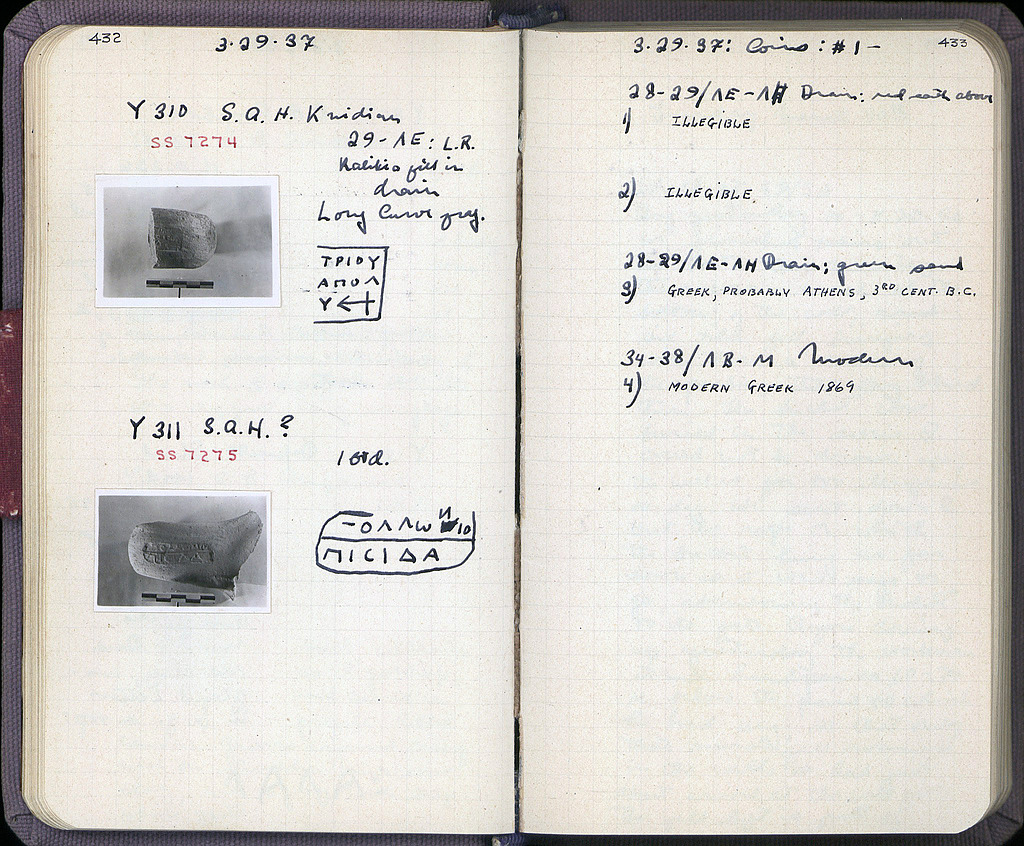 432
3·29·37
Y 310 S.A.H. Knidian
SS 7274
29-ΛE: L.R.
fill in
drain
Long Curve frag.
ΤΡΙΟΥ
ΑΠΟΛ
Υ
Y 311 S.A.H. ?
SS 7275
ΟΛΛω
ΠΙCΙΔΑ
433
3·29·37: Coins: #1-
28-29/ΛE-ΛH Drain; red earth above
1) ILLEGIBLE
2) ILLEGIBLE.
28-29/ΛE-ΛH Drain; green sand
3) GREEK, PROBABLY ATHENS, 3RD CENT. B.C.
34-38/ΛB-M Modern
4) MODERN GREEK 1869